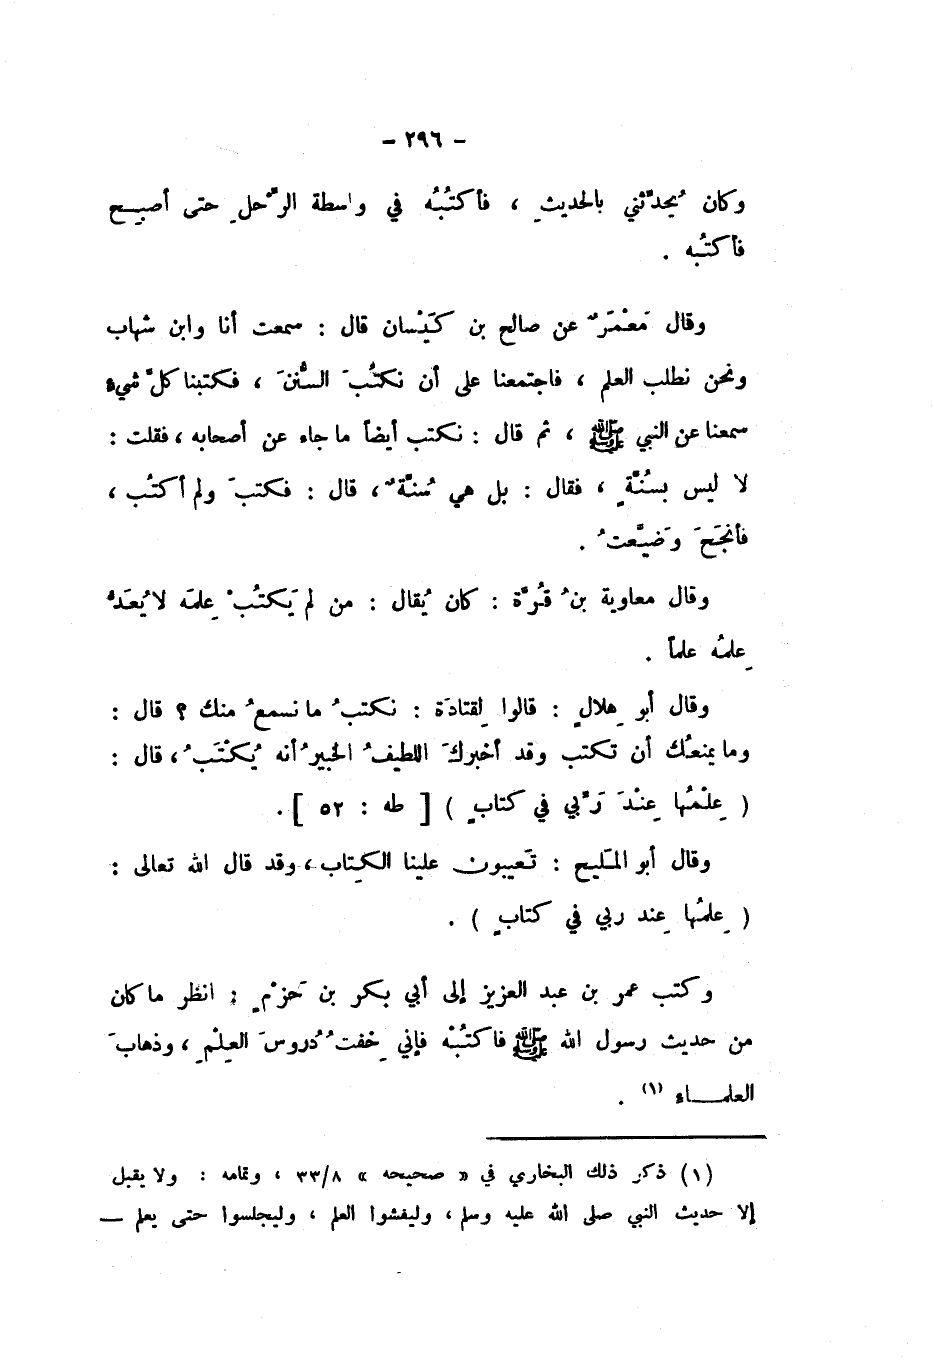 - ٢٩٦ -
وكان يُحدِّثني بالحديثِ ، فأكتُبُه في واسطة الرَّحلِ حتى أصبـح
فأكتُبه .
وقال مَعْمَرٌ عن صالح بن كَيْسان قال : سمعت أنا وابن شهاب
ونحن نطلب العلم ، فاجتمعنا على أن نكتُبَ السُّننَ ، فكتبنا كلَّ شيء
سمعنا عن النبي ﷺ ، ثم قال : نكتب أيضاً ما جاء عن أصحابه ، فقلت :
لا ليس بسُنَّةٍ ، فقال : بل هي سُنَّةٌ ، قال : فكتبَ ولم أكتُب ،
فأنجَحَ وضيَّعتُ .
وقال معاوية بنُ قُرَّة : كان يُقال : من لم يَكتُبْ عِلمَه لا يُعَدُّ
عِلمُه علماً .
وقال أبو هِلالٍ : قالوا لِقتادَة : نكتبُ ما نسمعُ منك ؟ قال :
وما يمنعُك أن تكتب وقد أخبركَ اللطيفُ الخبيرُ أنه يُكتَبُ ، قال :
( عِلْمُها عِنْدَ رَبِّي في كتابٍ ) [ طه : ٥٢ ] .
وقال أبو المَليح : تَعيبون علينا الكِتاب ، وقد قال الله تعالى :
( عِلمُها عِند ربي في كتابٍ ) .
وكتب عمر بن عبد العزيز إلى أبي بكر بن حَزْمٍ : انظر ما كان
من حديث رسول الله ﷺ فاكتُبْه فإني خِفتُ دُروسَ العِلْمِ ، وذهابَ
العلمـــاء (١) .
(١) ذكر ذلك البخاري في « صحيحه » ٣٣/٨ ، وتمامه : ولا يقبل
إلا حديث النبي صلى الله عليه وسلم ، وليفشوا العلم ، وليجلسوا حتى يعلم —